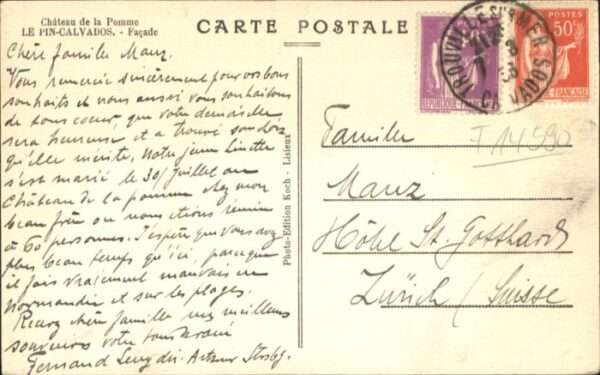 Château de la Pomme
LE PIN-CALVADOS. - Façade
CARTE POSTALE
Chère famille Manz.
Vous remercie sincèrement pour vos bons
souhaits et nous aussi vous souhaitons
de tout coeur, que votre demoiselle
sera heureuse et a trouvé son
qu'elle mérite. Notre jeune
s'est marié le 30/juillet au
Château de la pomme chez mon
beau frère ou nous étions réunis
à 60 personnes. J'espère que vous avez
plus beau temps qu'ici, parceque
il fais vraiment mauvais en
Normandie et sur les plages.
Recevez chère famille mes meilleurs
souvenirs votre
Fernand
Photo-Edition Koch - Lisieux
TROUVILLE SUR MER
CALVADOS
POSTES
50c
Familie
Manz
Hôtel St. Gotthard
Zürich / Suisse
T 14590